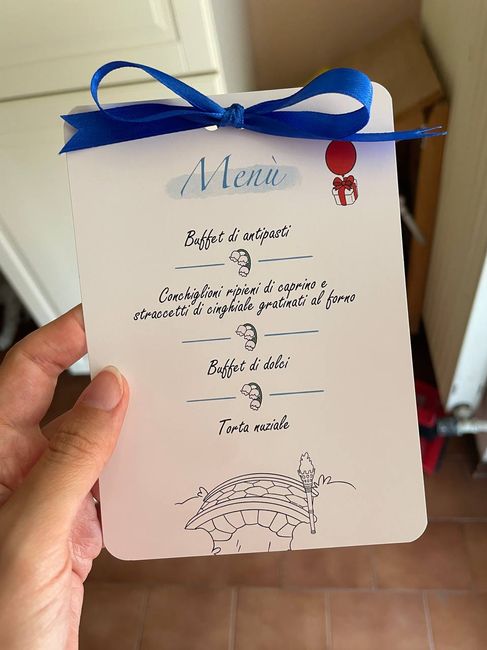 Menù
Buffet di antipasti
Conchiglioni ripieni di caprino e
straccetti di cinghiale gratinati al forno
Buffet di dolci
Torta nuziale